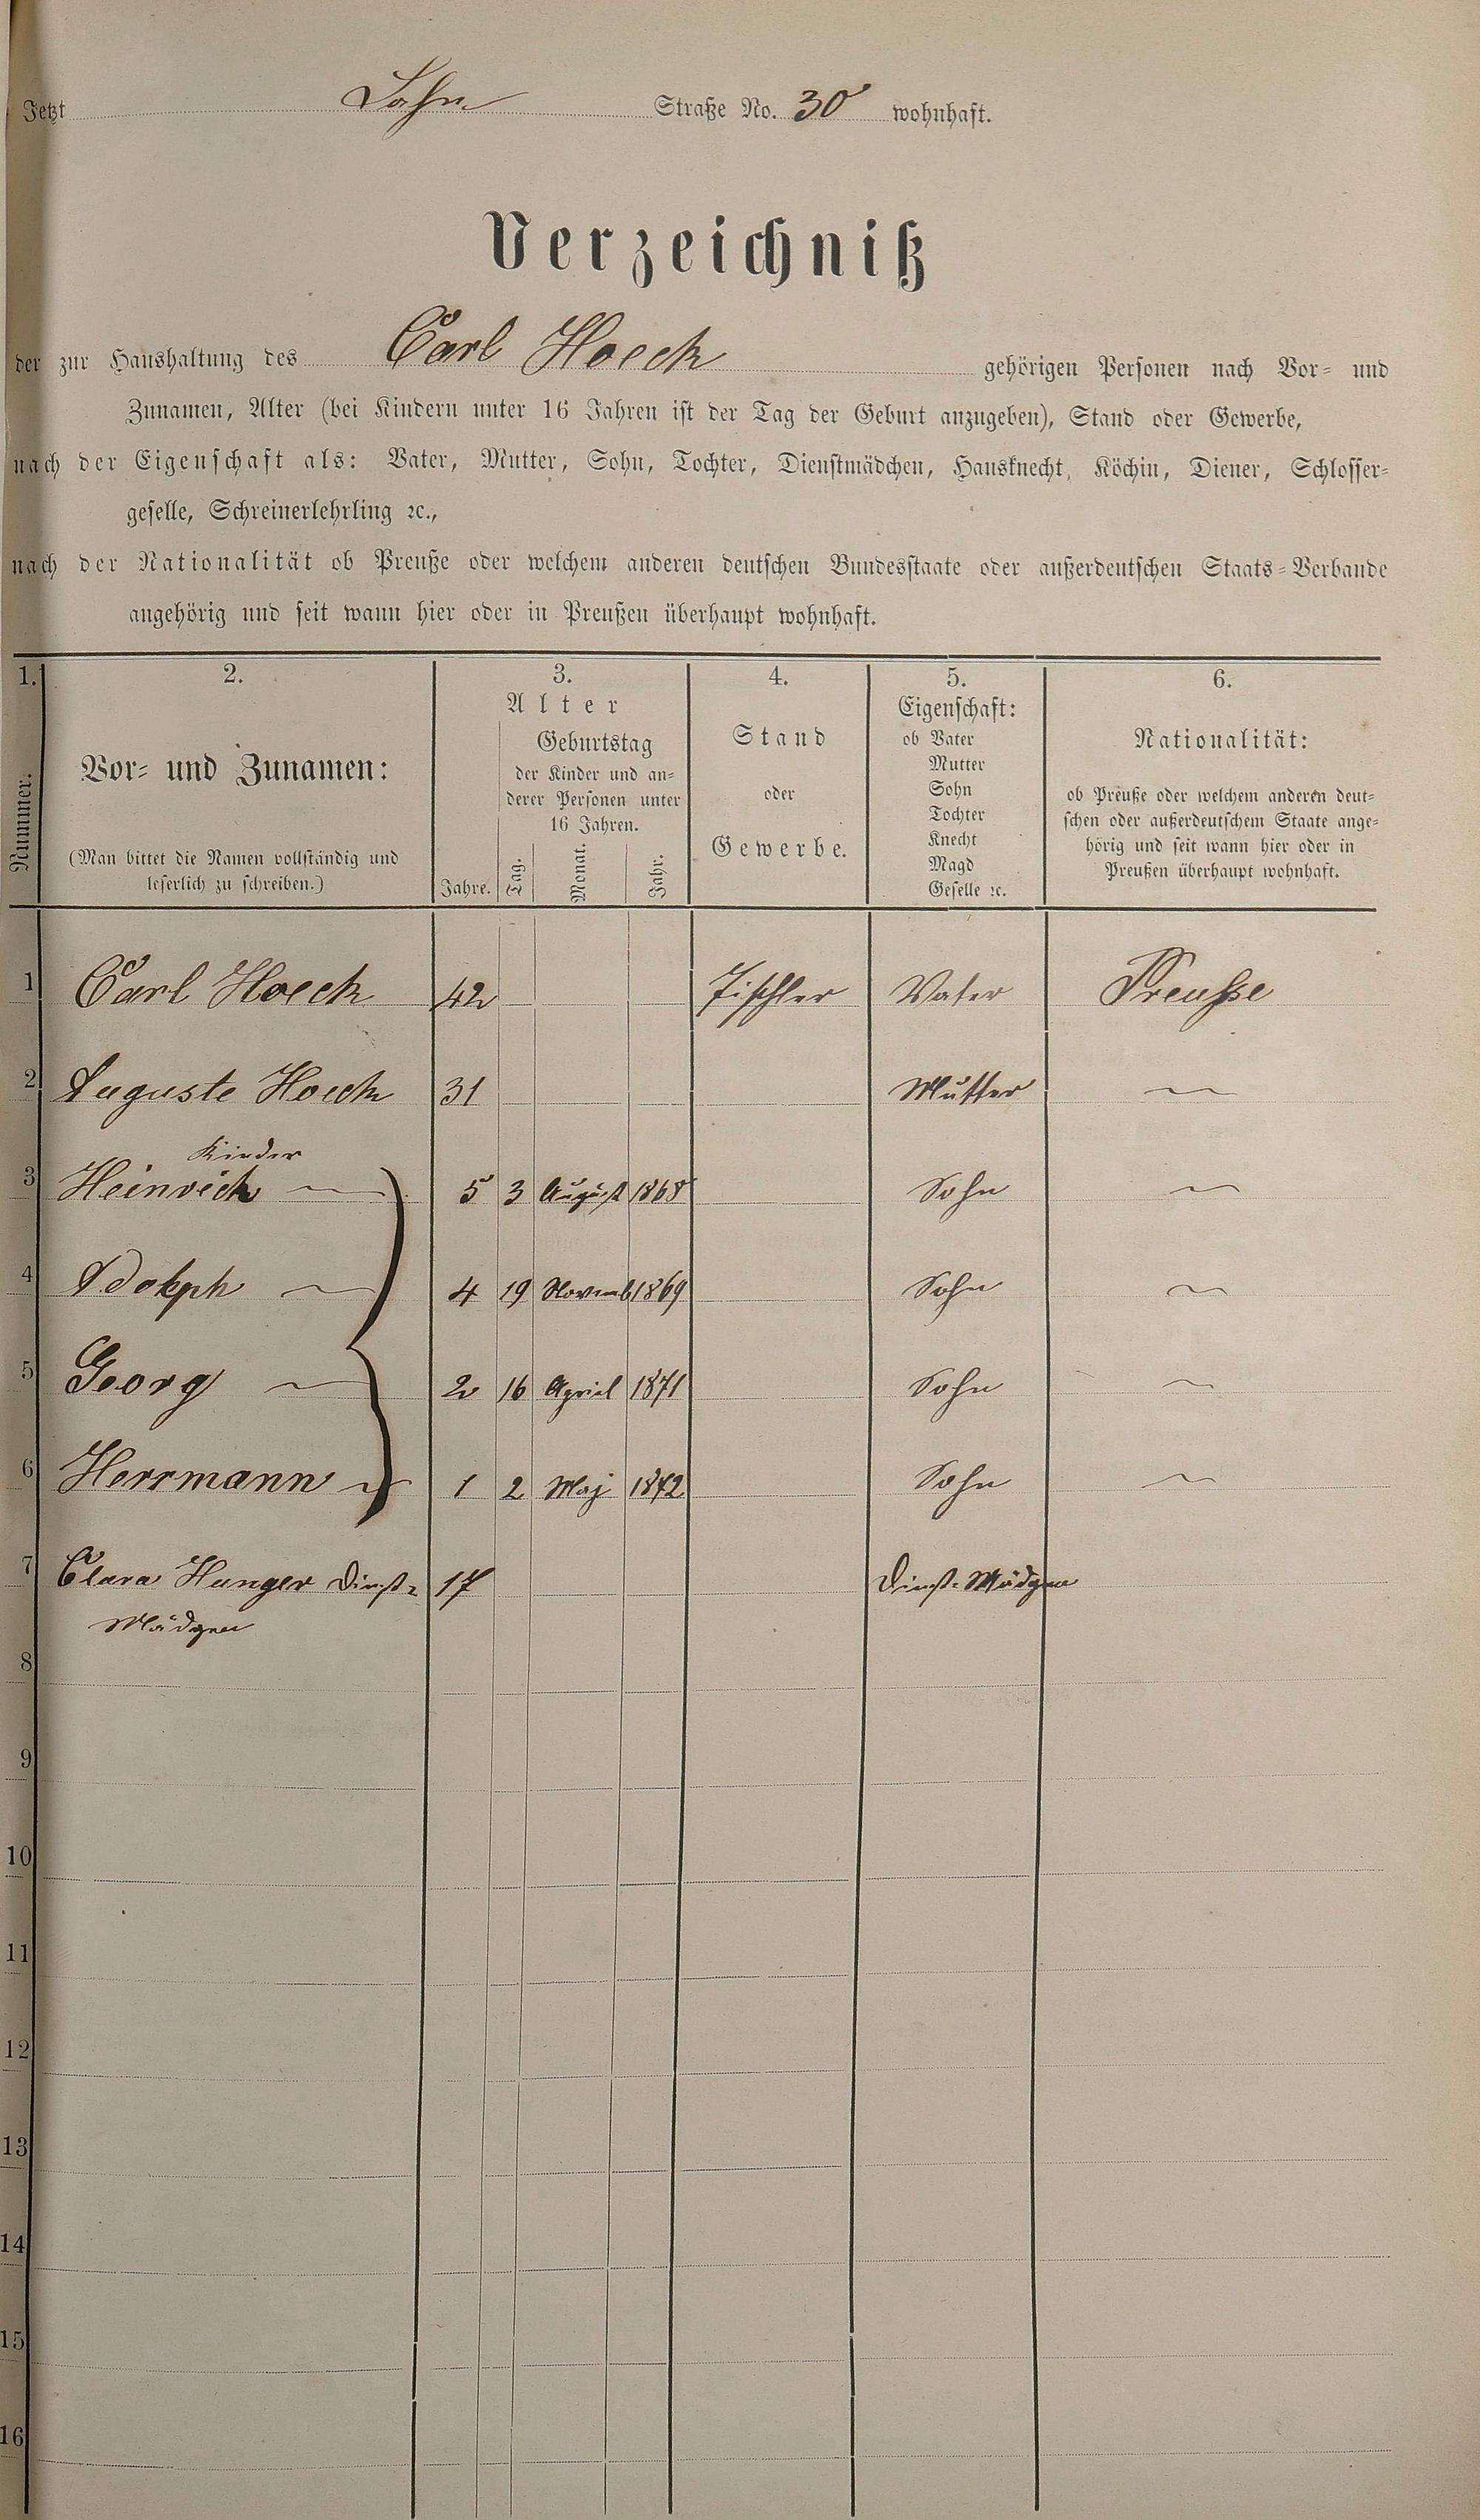 Jetzt Lahn Straße No. 30 wohnhaft.
Verzeichniß
der zur Haushaltung des Carl Hoeck gehörigen Personen nach Vor- und
Zunamen, Alter (bei Kindern unter 16 Jahren ist der Tag der Geburt anzugeben), Stand oder Gewerbe,
nach der Eigenschaft als: Vater, Mutter, Sohn, Tochter, Dienstmädchen, Hausknecht, Köchin, Diener, Schlosser-
geselle, Schreinerlehrling ꝛc.,
nach der Nationalität ob Preuße oder welchem anderen deutschen Bundesstaate oder außerdeutschen Staats-Verbande
angehörig und seit wann hier oder in Preußen überhaupt wohnhaft.
1. 2. 3. 4. 5. 6.
Nummer.
Vor- und Zunamen:
(Man bittet die Namen vollständig und
leserlich zu schreiben.)
Alter
Jahre.
Geburtstag
der Kinder und an-
derer Personen unter
16 Jahren.
Tag. Monat. Jahr.
Stand
oder
Gewerbe.
Eigenschaft:
ob Vater
Mutter
Sohn
Tochter
Knecht
Magd
Geselle ꝛc.
Nationalität:
ob Preuße oder welchem anderen deut-
schen oder außerdeutschem Staate ange-
hörig und seit wann hier oder in
Preußen überhaupt wohnhaft.
1 Carl Hoeck 42 Tischler Vater Preuße
2 Auguste Hoeck 31 Mutter ~
Kinder
3 Heinrich ~ 5 3 August 1868 Sohn ~
4 Adolph ~ 4 19 Novemb 1869 Sohn ~
5 Georg ~ 2 16 April 1871 Sohn ~
6 Herrmann ~ 1 2 Maj 1872 Sohn ~
7 Clara Hunger Dinst- 17 Dinst-Mädgen
Mädgen
8
9
10
11
12
13
14
15
16